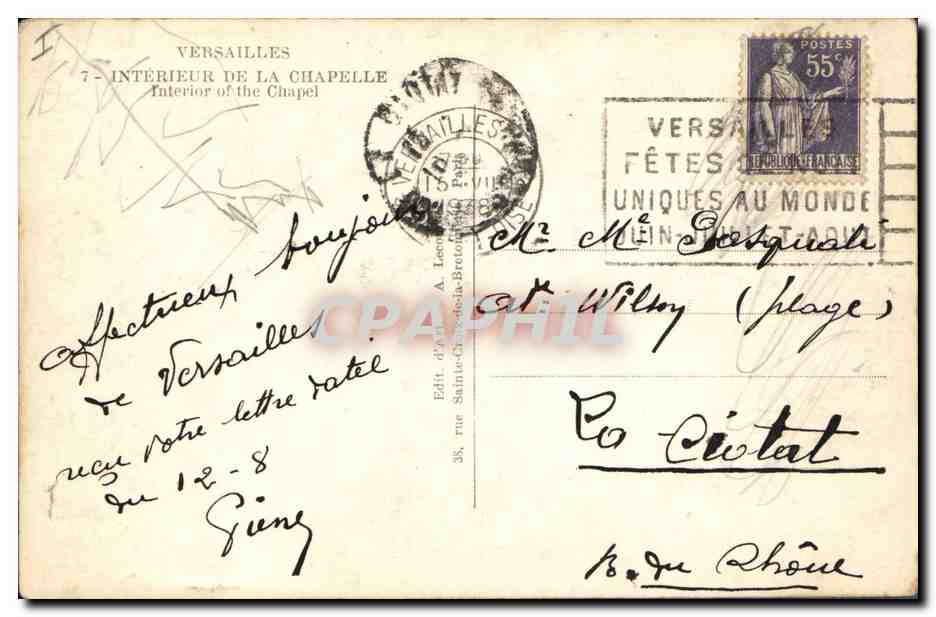 VERSAILLES
7 - INTÉRIEUR DE LA CHAPELLE
Interior of the Chapel
I
POSTES
55c
RÉPUBLIQUE FRANÇAISE
VERSAILLES
FÊTES
UNIQUES AU MONDE
JUIN-JUILLET-AOUT
VERSAILLES
1938
Edit. d'Art A. Leconte
38, rue Sainte-Croix-de-la-Bretonnerie Paris
CPAPHIL
Affectueux bonjour
de Versailles
reçu votre lettre datée
du 12-8
Pierre
Mr Me Pasquali
Wilson (plage)
La Ciotat
B. du Rhône